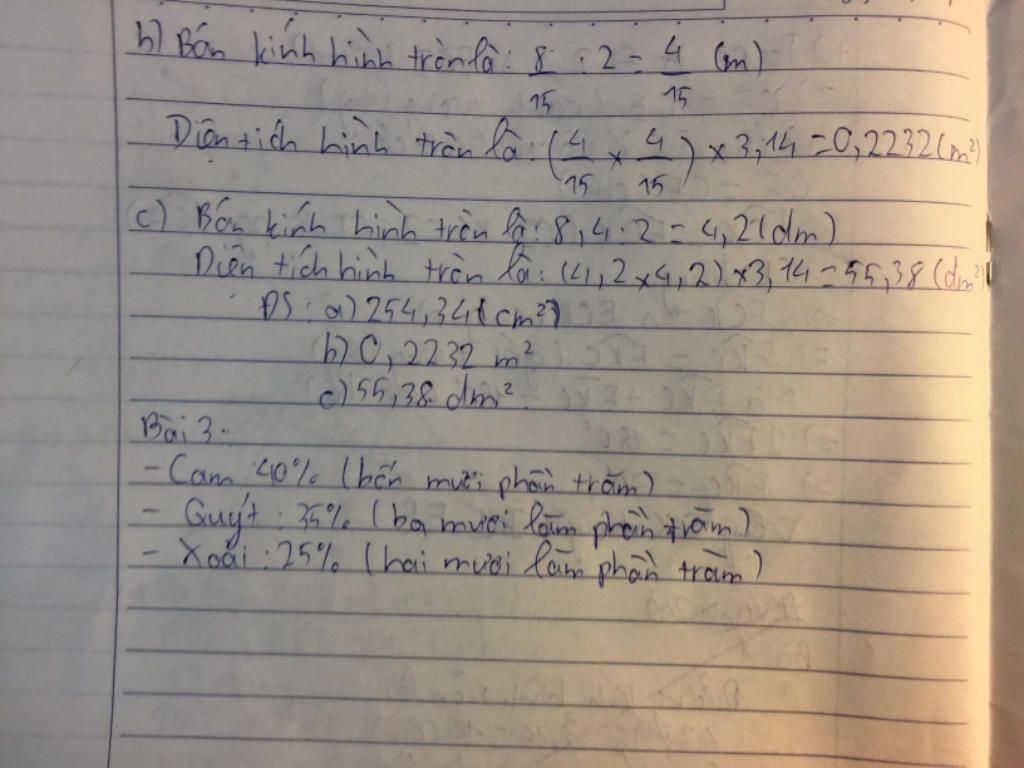 b) Bán kính hình tròn là: 8/15 : 2 = 4/15 (m)
Diện tích hình tròn là: (4/15 × 4/15) × 3,14 = 0,2232 (m²)
c) Bán kính hình tròn là: 8,4 : 2 = 4,2 (dm)
Diện tích hình tròn là: (4,2 × 4,2) × 3,14 = 55,38 (dm²)
ĐS: a) 254,34 (cm²)
b) 0,2232 m²
c) 55,38 dm².
Bài 3.
- Cam 40% (bốn mươi phần trăm)
- Quýt : 35% (ba mươi lăm phần trăm)
- Xoài : 25% (hai mươi lăm phần trăm)